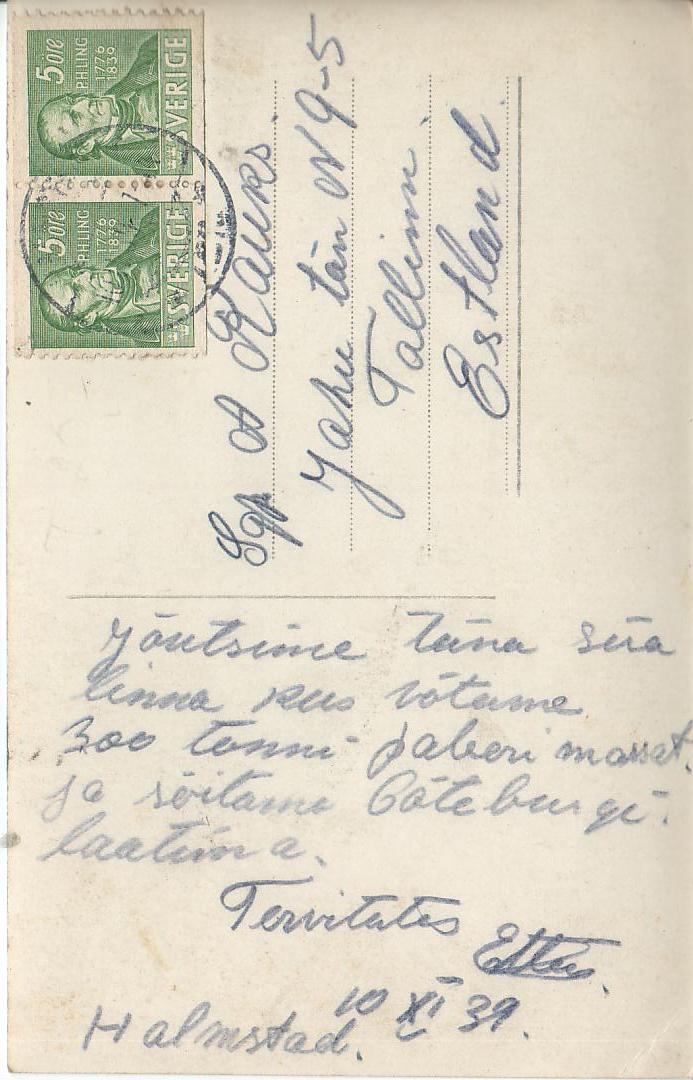 5 öre
P.H. LING
1776
1839
SVERIGE
5 öre
P.H. LING
1776
1839
SVERIGE
Sgp A Kauks.
Jahu tän N 9-5
Tallinn.
Estland.
Jõutsime täna siia
linna kus võtame
300 tonni paberi massat.
ja sõitame Göteburgi.
laatima.
Tervitates
10 XI 39.
Halmstad.